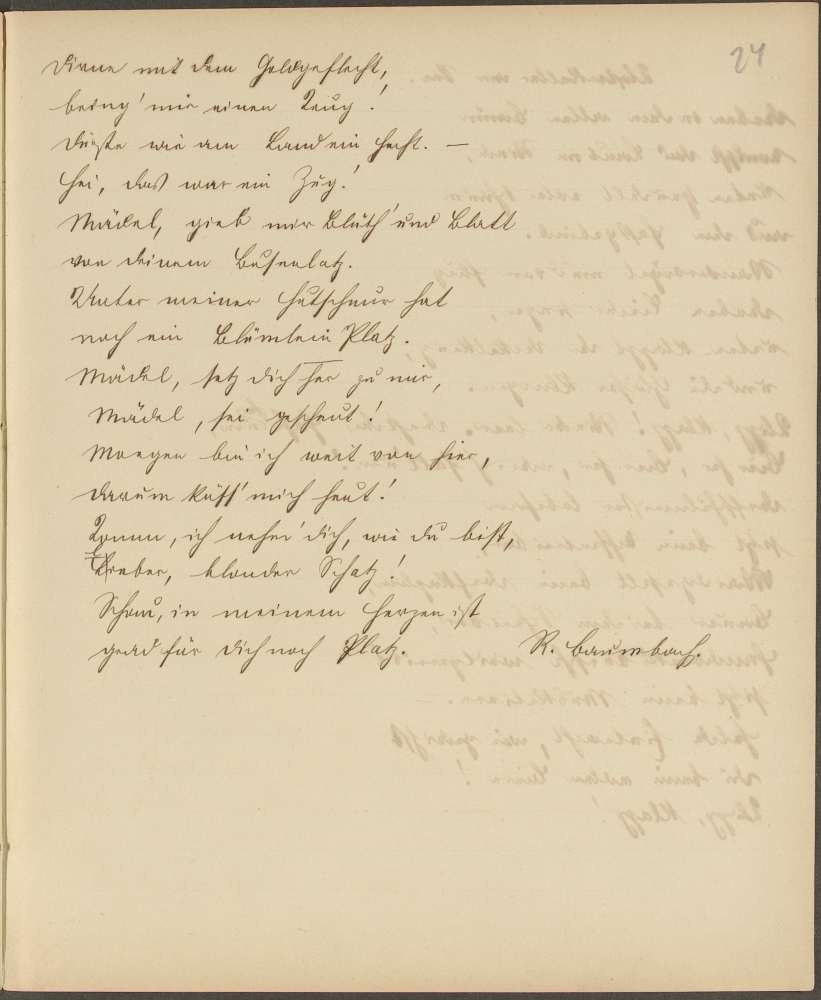 24
Dirne mit dem Goldgeflecht,
bring' mir einen Krug!
Dürste wie am Land ein Hecht. —
Hei, das war ein Zug!
Mädel, gieb mir Blüth' und Blatt
von deinem Busenlatz.
Unter meiner Hutschnur hat
noch ein Blümlein Platz.
Mädel, setz dich her zu mir,
Mädel, sei gescheut!
Morgen bin ich weit von hier,
darum küss' mich heut!
Komm, ich nehm' dich, wie du bist,
Lieber, blonder Schatz!
Schau, in meinem Herzen ist
grad für dich noch Platz.
R. Baumbach.